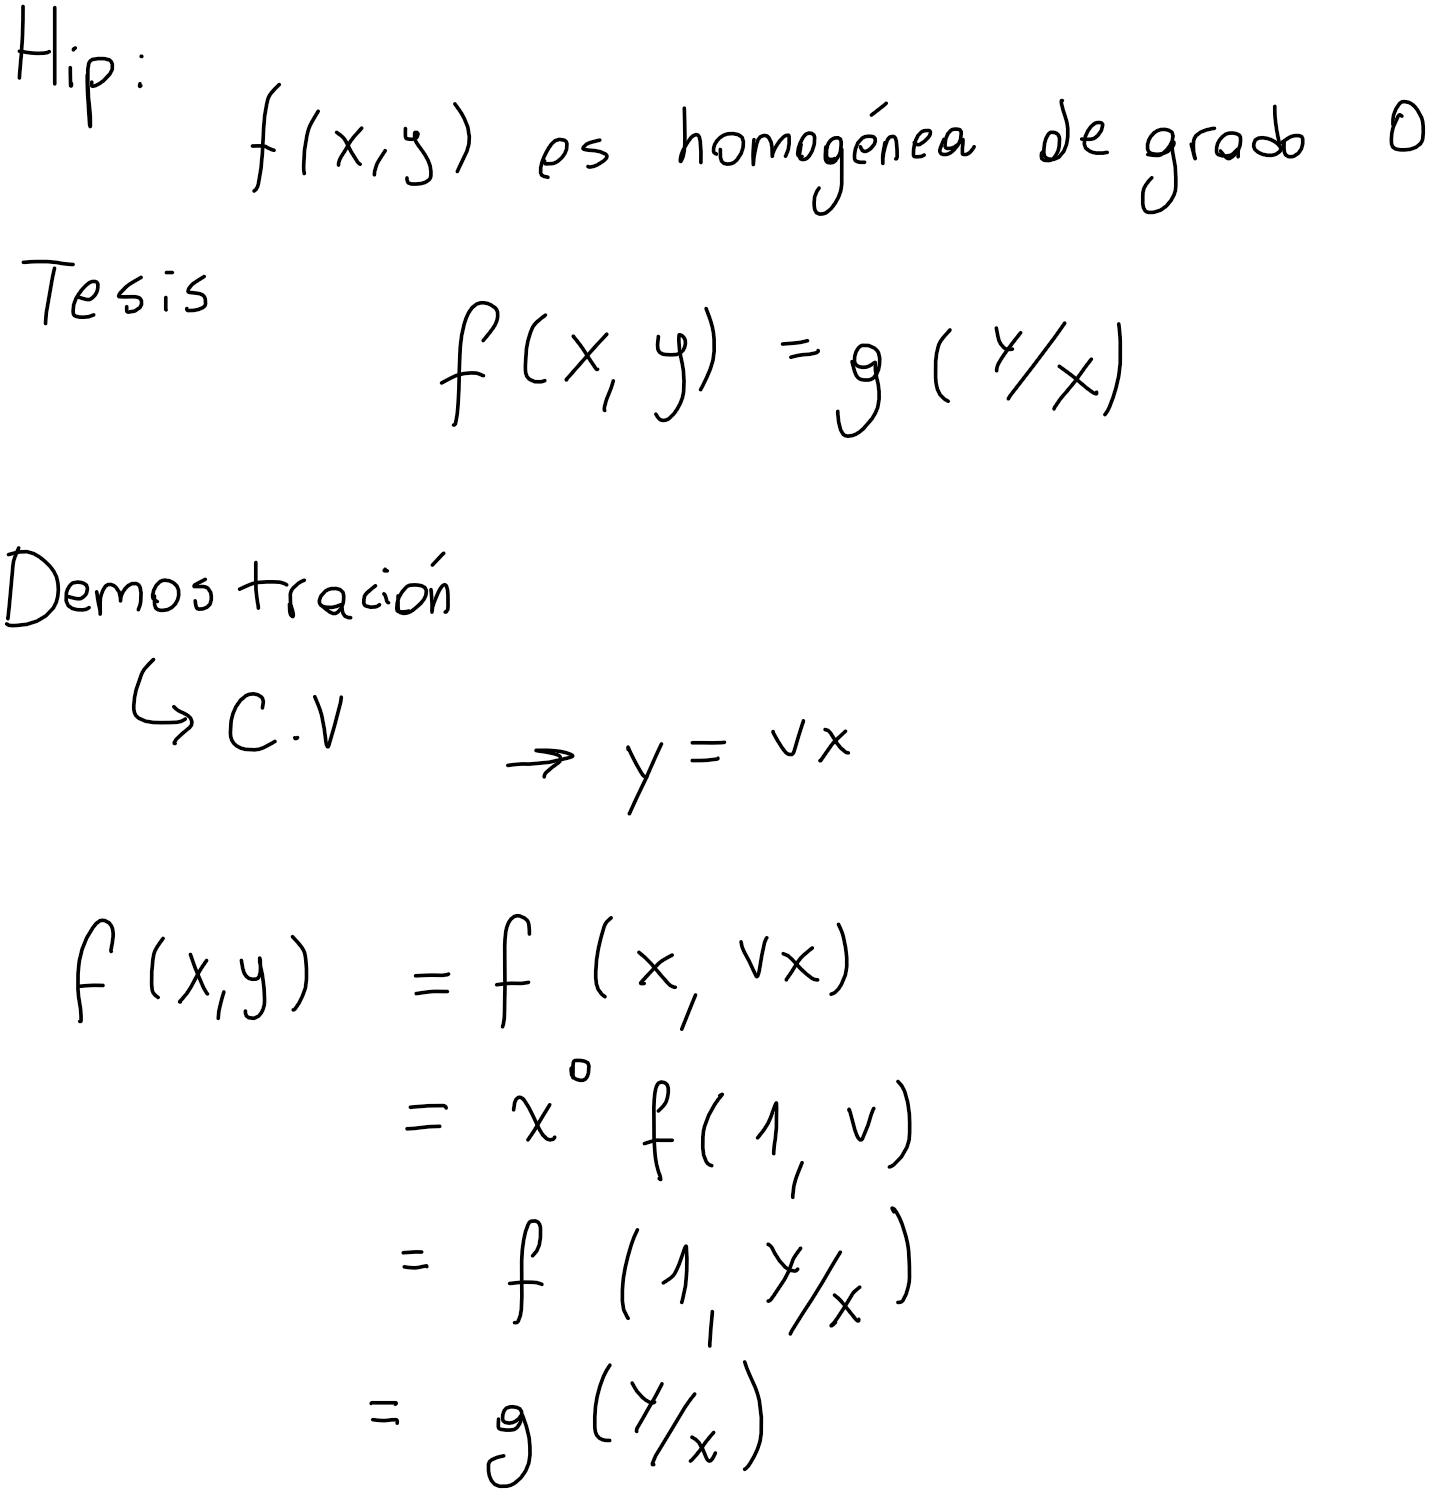 Hip:
f(x,y) es homogénea de grado 0
Tesis
f(x,y) = g(y/x)
Demostración
↳ C.V → y = vx
f(x,y) = f(x, vx)
= x⁰ f(1, v)
= f(1, y/x)
= g(y/x)